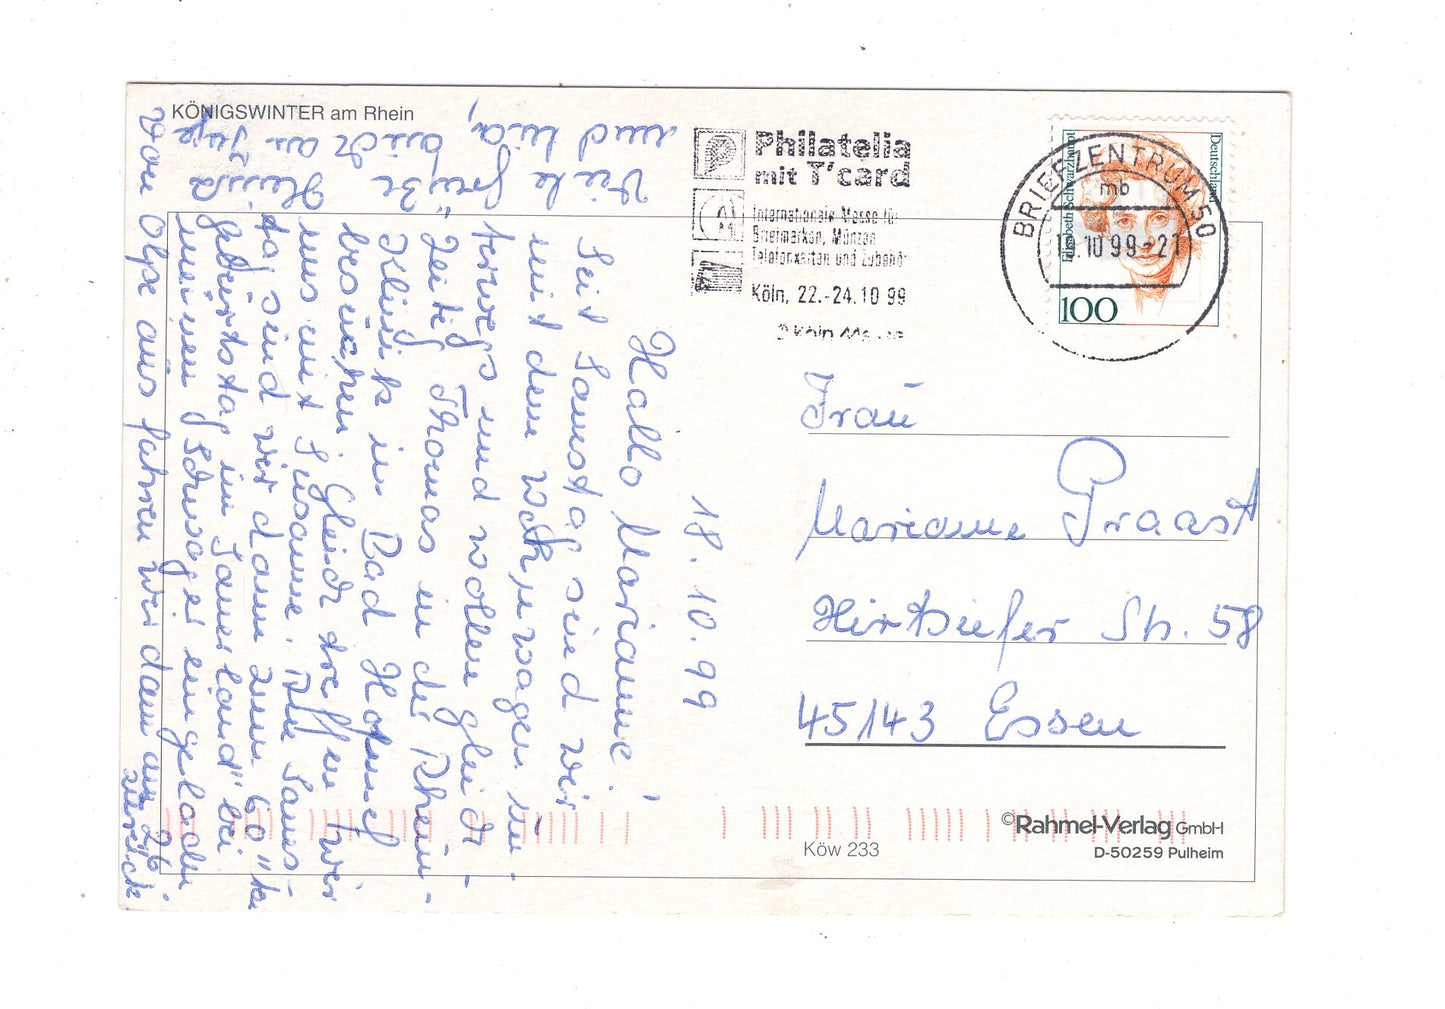 KÖNIGSWINTER am Rhein
Philatelia
mit T'card
Internationale Messe für
Briefmarken, Münzen
Telefonkarten und Zubehör
Köln, 22.-24.10 99
BRIEFZENTRUM 50
mb
10 99-21
Deutschland
Elisabeth Schwarzhaupt
100
18. 10. 99
Hallo Marianne!
Seit Samstag sind wir
mit dem wagen un-
terwegs und wollen gleich-
zeitig Thomas in der Rhein-
Klinik in Bad Honnef
besuchen. Gleich treffen wir
uns mit Susanne. Am Sams-
tag sind wir dann zum "60"ten
geburtstag im Sauerland" bei
meinem Schwager eingeladen
von Olpe aus fahren wir dann am 26.
zurück.
Viele grüße
auch an
Frau
Marianne Praast
Hirtsiefer Str. 58
45143 Essen
©Rahmel-Verlag GmbH
D-50259 Pulheim
Köw 233